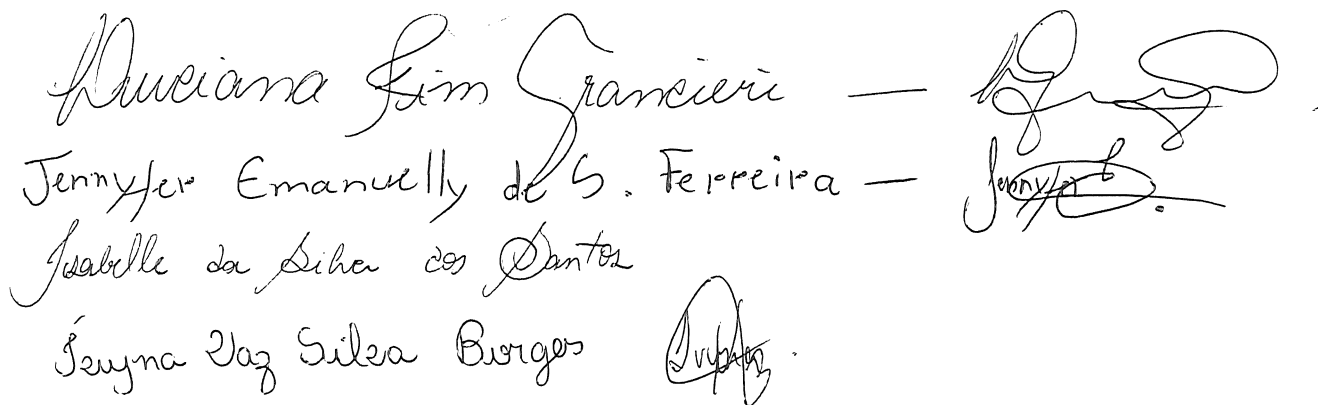 Luciana Kim Grancieri —
Jennyfer Emanuelly de S. Ferreira — Jennyfer
Isabelle da Silva dos Santos
Vaz Silva Burges